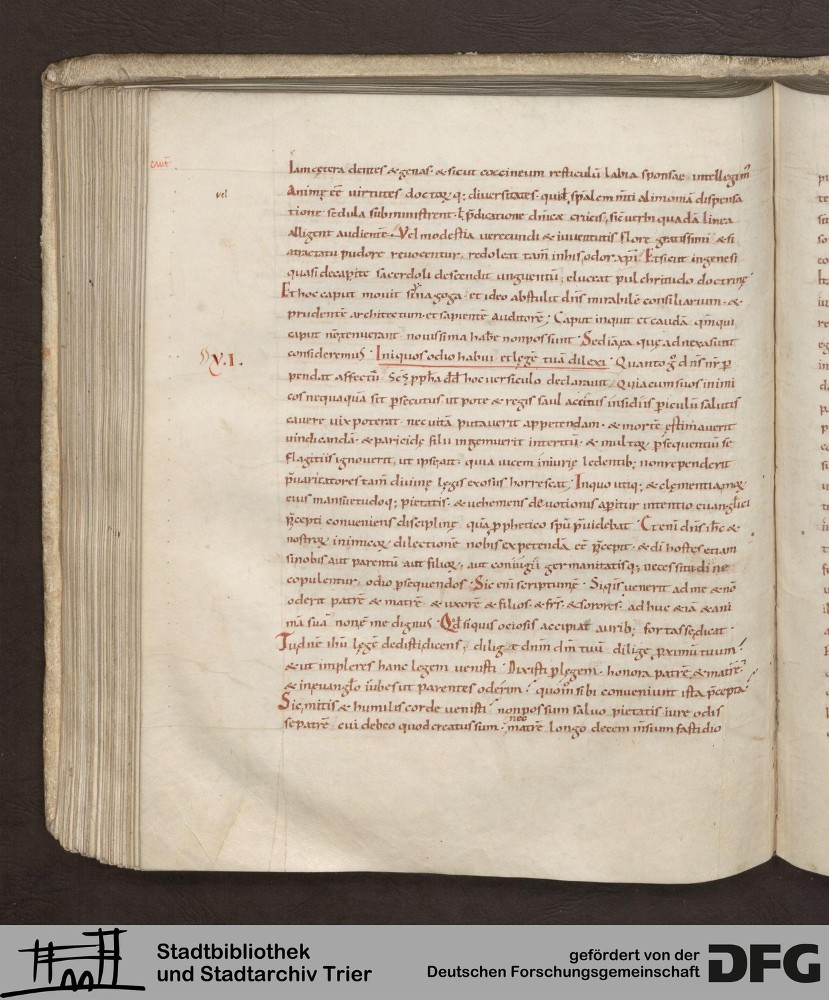 Iam cętera dentes & genas. & sicut coccineum resticulū labia sponsae intellegim̄
Animę eē virtutes doctorꝝ q; diversitates. quę sp̄alem alimoniā dispensa
vel
tione sedula subministrent. ł p̄dicatione dn̄icę crucis, sic verbi quadā linea
alligent audientē. Vel modestia verecundi & iuventutis flore gratissimi & si
atractatu pudore revocentur. redoleat tam̄ in his odor xp̄i. Et sicut in genesi
quasi de capite sacerdoli descendit unguentū; eluceat pulchritudo doctrinę
Et hoc caput movit synagoga. et ideo abstulit dn̄s mirabilē consiliarium. &
prudentē architectum. et sapientē auditorē; Caput inquit et caudā. qm̄ qui
caput n̄ tenuerant. novissima habe non possunt. Sed iā ea quę adnexa sunt
XV.I.
consideremus. Iniquos odio habui et legē tuā dilexi. Quanto g̊ dn̄s nr̄ p̄
pendat affectū. Scs̄ ppha dd̄ hoc versiculo declaravit. Quia cum suos inimi
cos nequaquā sit p̄secutus ut pote & regis saul accitus insidiis p̄iculū salutis
cavere vix poterat. nec vitā putaverit appetendam. & mortē ęstimaverit
vindicandā. & paricidę filii ingemuerit interitū. & multorꝝ p̄sequentiū se
flagitiis ignoverit, ut ipse ait. quia vicem iniurię ledentib; non rependerit
p̄varicatores tam̄ divinę legis exosus horrescat. In quo utiq; & clementia magꝝ
eius mansuetudoq; pietatis. & vehemens devotionis aperitur intentio euangl̄ici
p̄cepti conveniens disciplinę. quā p̄phetico sp̄u p̄videbat. Etenī dn̄s ih̄c &
nostrorꝝ inimicorꝝ dilectionē nobis expetendā eē p̄cepit. & di hostes etiam
si nobis aut parentū aut filiorꝝ, aut coniugii germanitatisq; necessitudine
copulentur, odio p̄sequendos. Sic enī scriptum ē. Siquis venerit ad me & nō
oderit patrē & matrē. & uxorē & filios. & fr̄s. & sorores. adhuc & iā & ani
mā suā. non ē me dignus. Qd̄ siquis ociosis accipiat aurib; fortasse dicat.
Tu dn̄e ihū legē dedisti dicens, dilig & dn̄m dm̄ tuū. dilige p̄ximū tuum.
& ut impleres hanc legem venisti. Dixisti p̄ legem. honora patrē & matrē.
& in evanglo iubes ut parentes oderim. quom̊ sibi conveniunt ista p̄cepta.
Sic mitis & humilis corde venisti. non possum salvo pietatis iure odis
nec
se patrē. cui debeo quod creatus sum. matrē longo decem m̄sium fastidio
Stadtbibliothek
und Stadtarchiv Trier
gefördert von der
Deutschen Forschungsgemeinschaft
DFG